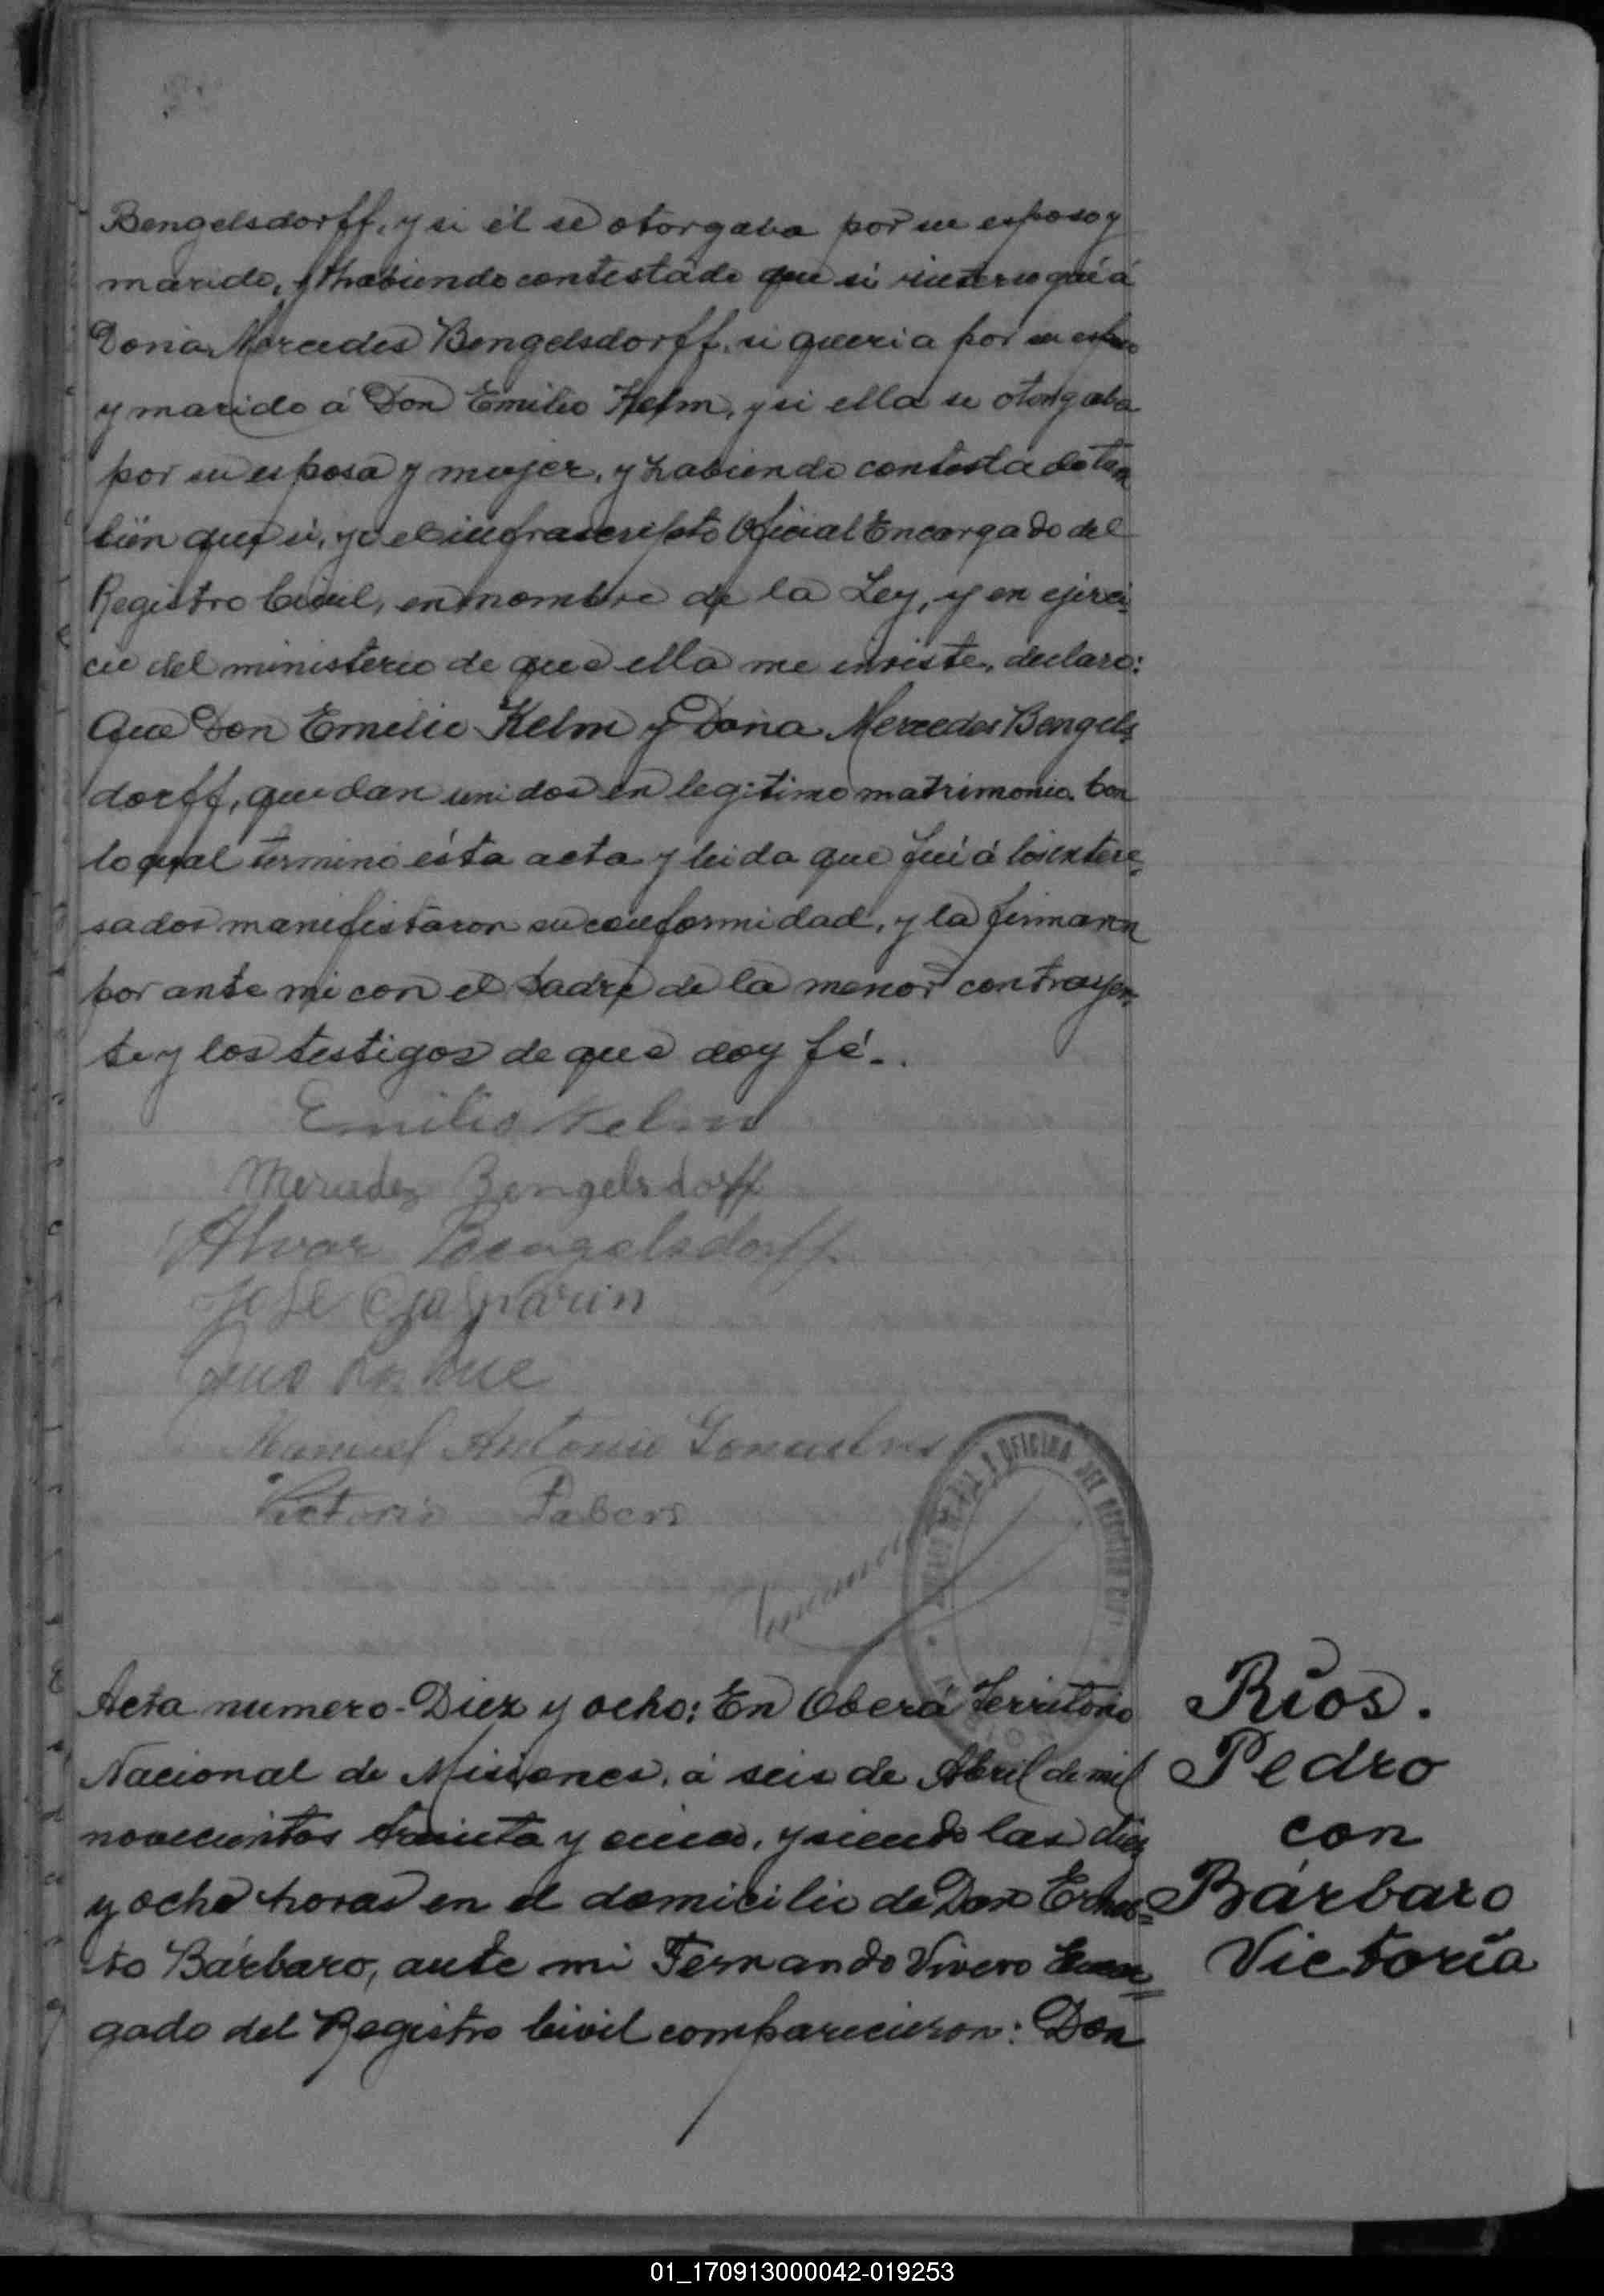 Bengelsdorff, y si él se otorgaba por su esposo y
marido, y habiendo contestado que si interrogué á
Doña Mercedes Bengelsdorff, si queria por su esposo
y marido á Don Emilio Kelm, y si ella se otorgaba
por su esposa y mujer, y habiendo contestado tam
bién que si, yo el infrascripto Oficial Encargado del
Registro Civil, en nombre de la Ley, y en ejerci-
cio del ministerio de que ella me inviste, declaro:
Que Don Emilio Kelm y Doña Mercedes Bengels-
dorff, quedan unidos en legitimo matrimonio. Con
lo qual terminó ésta acta y leida que fué á los intere-
sados manifestaron su conformidad, y la firmaron
por ante mi con el padre de la menor contrayen-
te y los testigos de que doy fé-.
Emilio Kelm
Mercedes Bengelsdorff
Alvar Bengelsdorff
José Gasparin
Manuel Antonio
OFICINA DEL REGISTRO
Acta numero-Diez y ocho: En Oberá Territorio
Nacional de Misiones, á seis de Abril de mil
novecientos treinta y cinco, y siendo las diez
y ocho horas en el domicilio de Don Ernes=
to Bárbaro, ante mi Fernando Vivero Encar=
gado del Registro Civil comparecieron: Don
Ríos.
Pedro
con
Bárbaro
Victoría
01_170913000042-019253